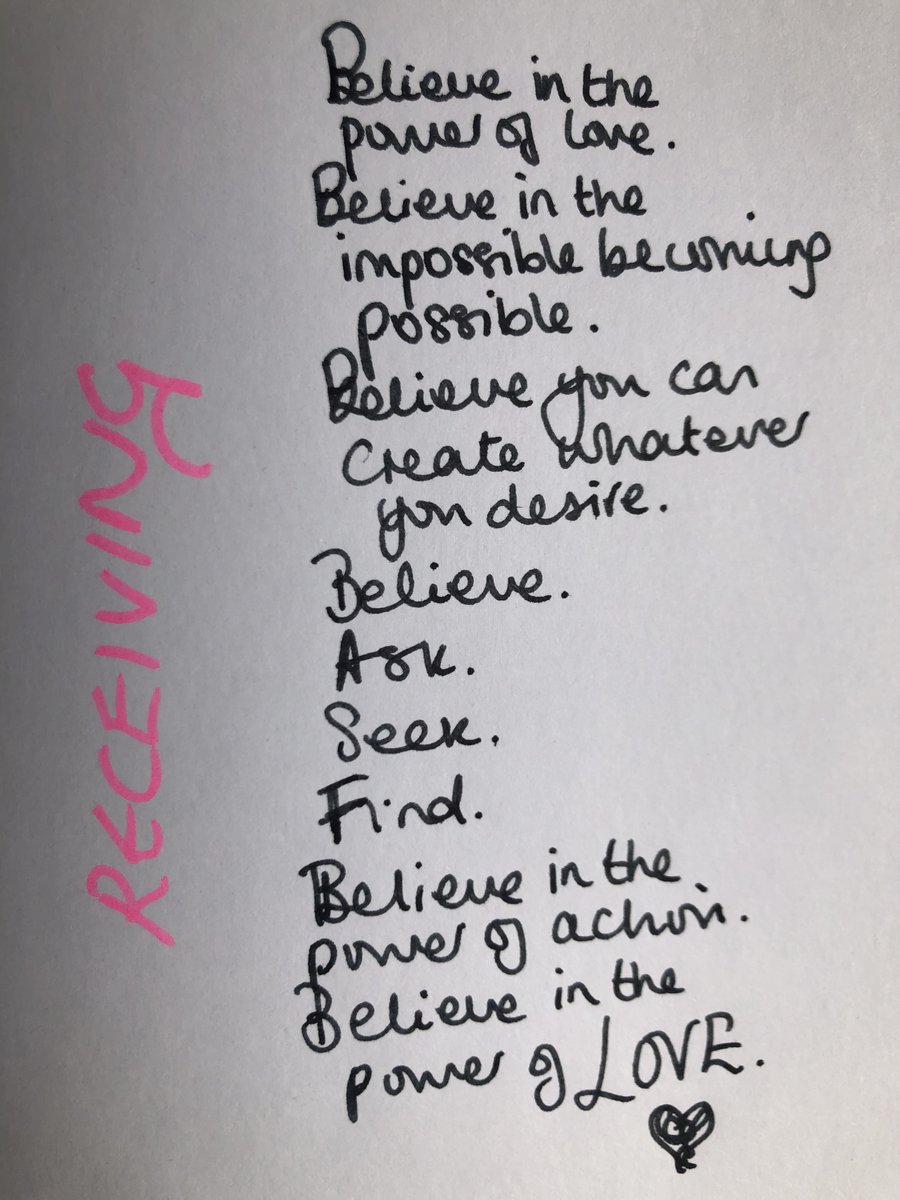 RECEIVING
Believe in the
power of love.
Believe in the
impossible becoming
possible.
Believe you can
create whatever
you desire.
Believe.
Ask.
Seek.
Find.
Believe in the
power of action.
Believe in the
power of LOVE.